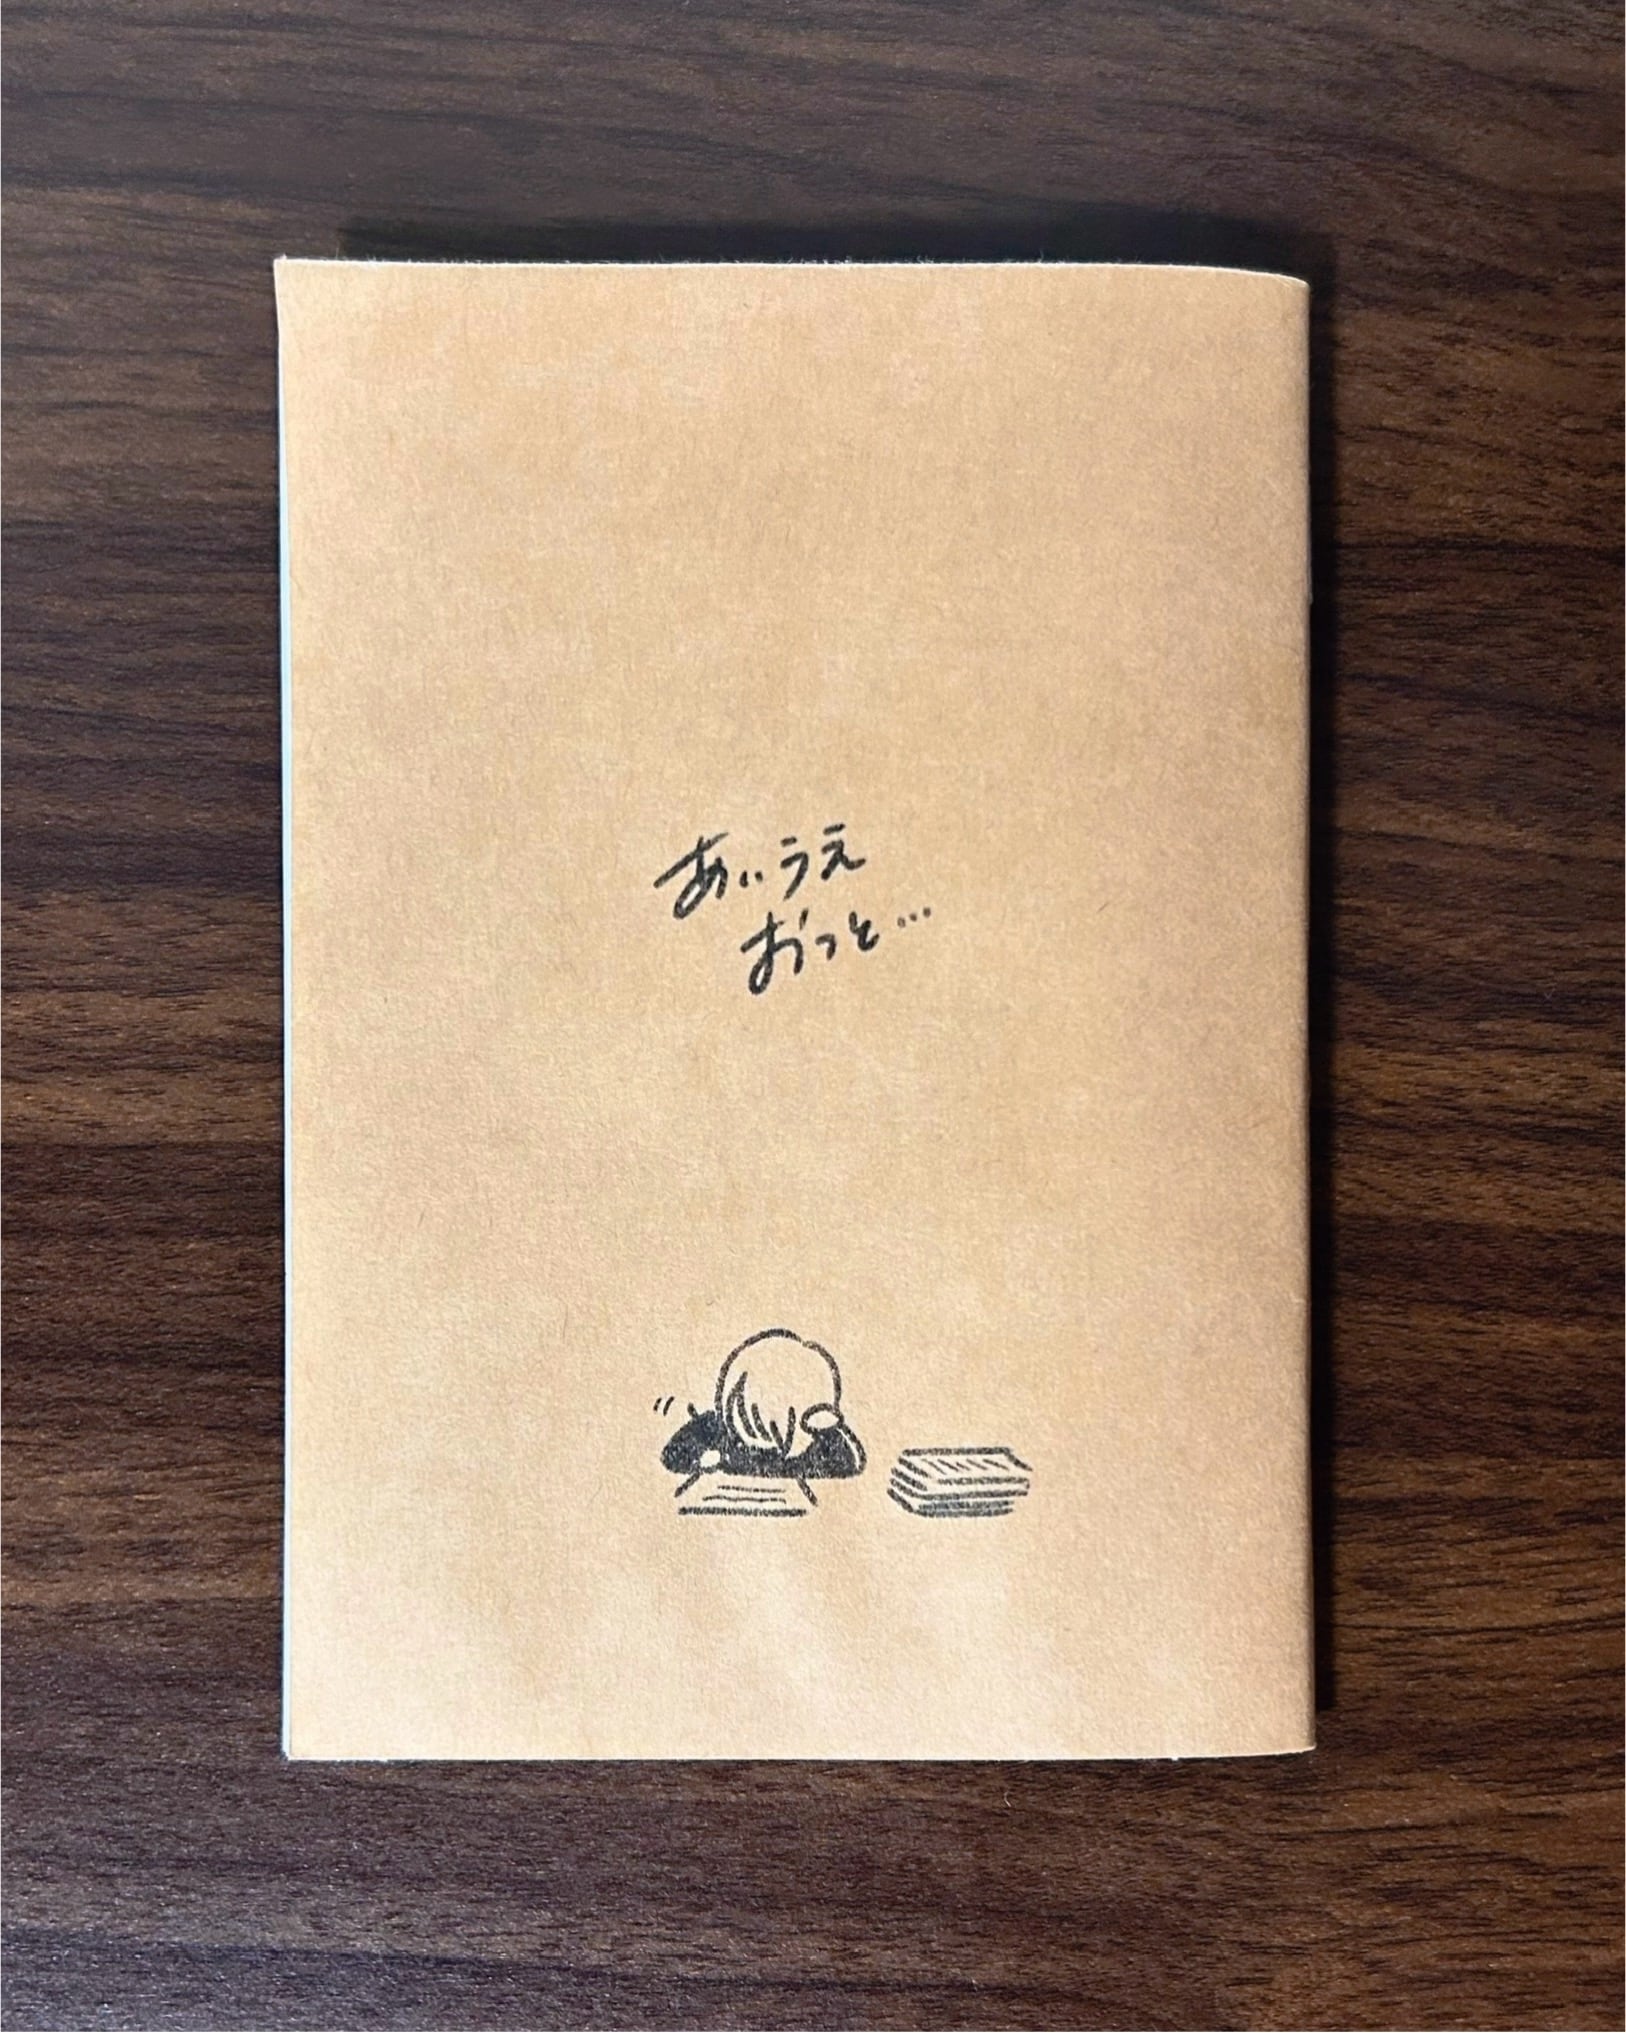 あいうえ
おっと…